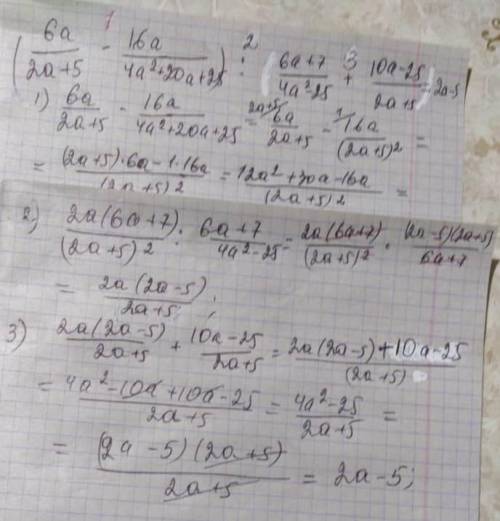 1 2 3
(6a/(2a+5) - 16a/(4a²+20a+25)) : (6a+7)/(4a²-25) + (10a-25)/(2a+5) = 2a-5
1) 6a/(2a+5) - 16a/(4a²+20a+25) = ²ᵃ⁺⁵⁾6a/(2a+5) - ¹⁾16a/(2a+5)² =
= ((2a+5)·6a-1·16a)/(2a+5)² = (12a²+30a-16a)/(2a+5)² =
2) 2a(6a+7)/(2a+5)² : (6a+7)/(4a²-25) = 2a(6a+7)/(2a+5)² · (2a-5)(2a+5)/(6a+7)
= 2a(2a-5)/(2a+5);
3) 2a(2a-5)/(2a+5) + (10a-25)/(2a+5) = (2a(2a-5)+10a-25)/(2a+5)
= (4a²-10a+10a-25)/(2a+5) = (4a²-25)/(2a+5) =
= (2a-5)(2a+5)/(2a+5) = 2a-5;